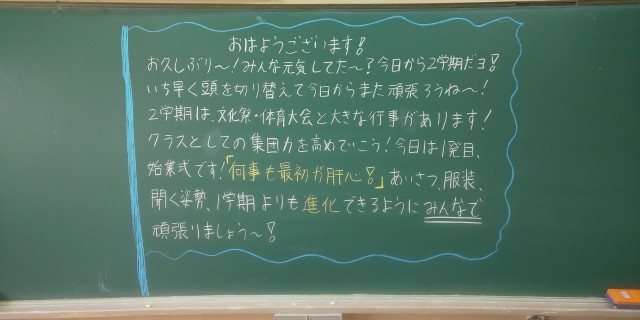 おはようございます!
お久しぶり〜!みんな元気してた〜?今日から2学期だヨ!
いち早く頭を切り替えて今日からまた頑張ろうね〜!
2学期は、文化祭・体育大会と大きな行事があります!
クラスとしての集団力を高めていこう!今日は1発目、
始業式です!「何事も最初が肝心!」あいさつ、服装、
聞く姿勢、1学期よりも進化できるようにみんなで
頑張りましょう〜!